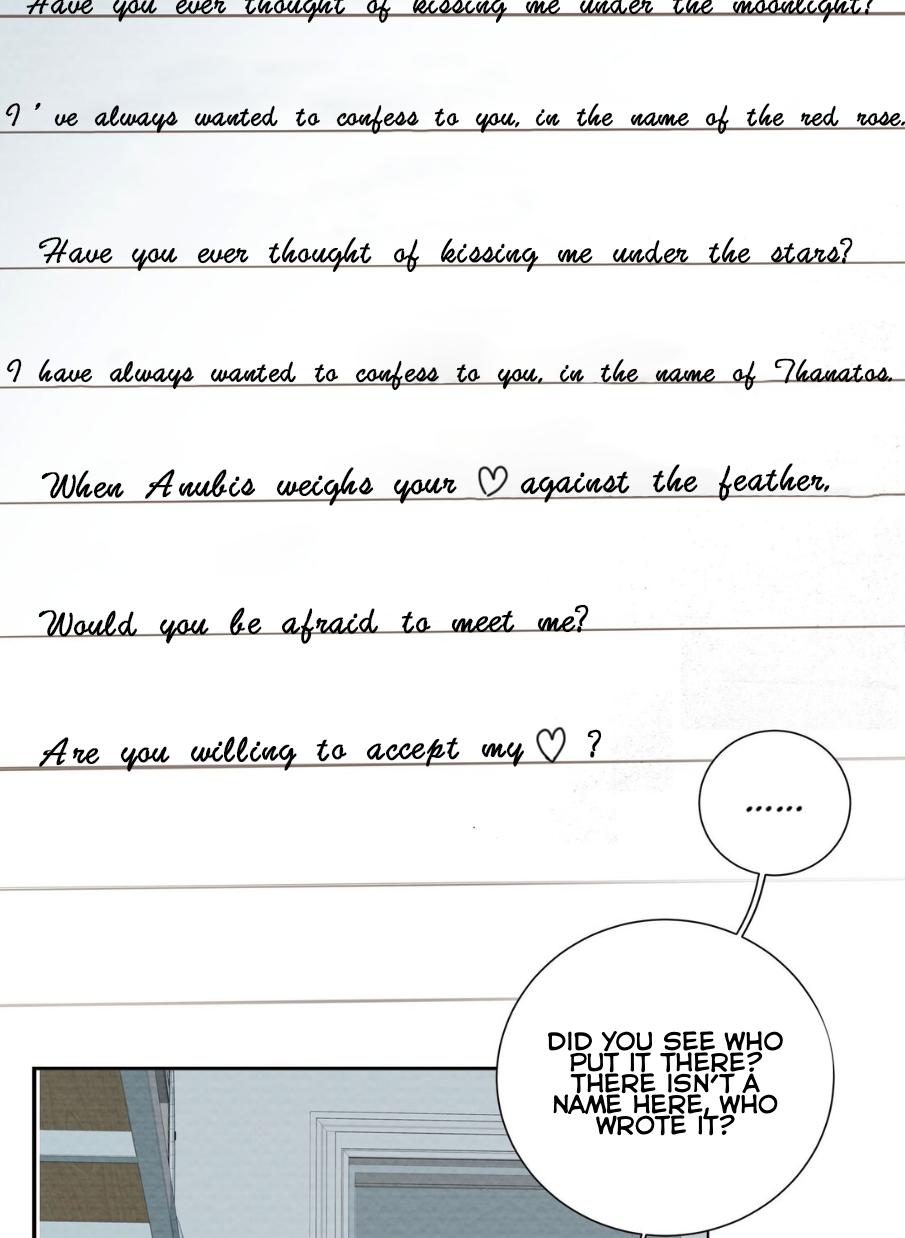 Have you ever thought of kissing me under the moonlight?
I've always wanted to confess to you, in the name of the red rose.
Have you ever thought of kissing me under the stars?
I have always wanted to confess to you, in the name of Thanatos.
When Anubis weighs your ♡ against the feather,
Would you be afraid to meet me?
Are you willing to accept my ♡ ?
......
DID YOU SEE WHO
PUT IT THERE?
THERE ISN'T A
NAME HERE, WHO
WROTE IT?